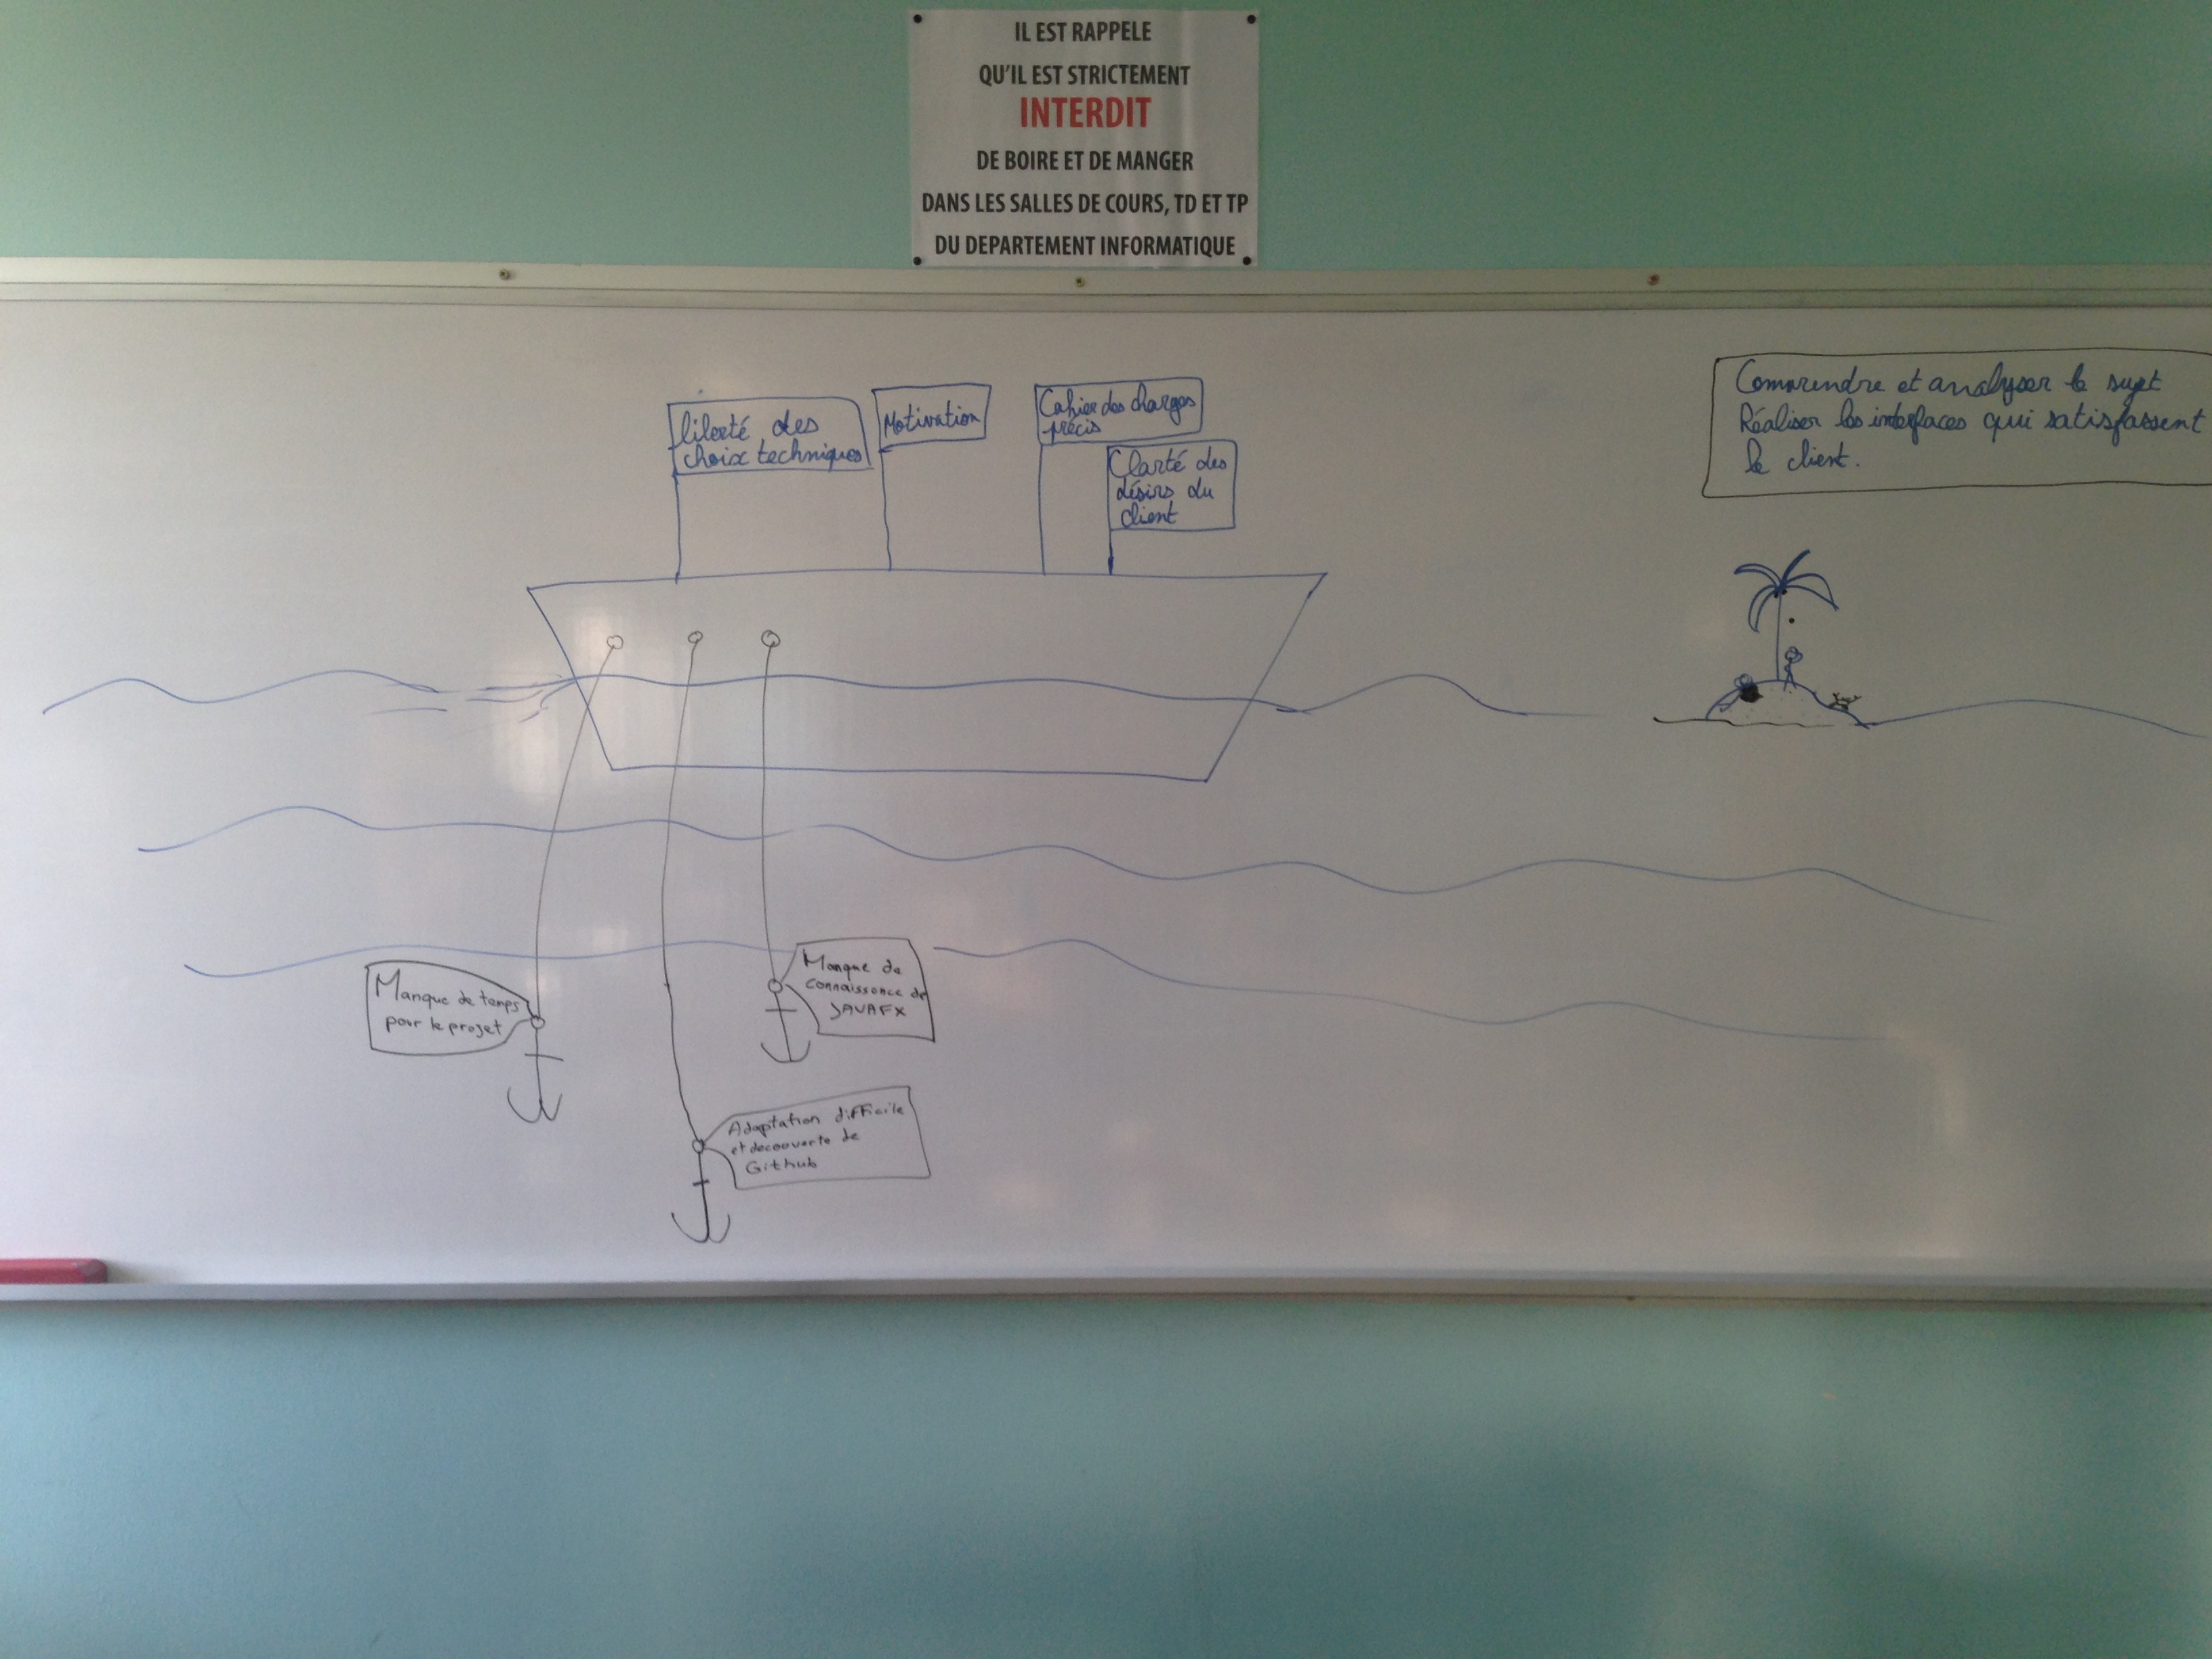 IL EST RAPPELE
QU'IL EST STRICTEMENT
INTERDIT
DE BOIRE ET DE MANGER
DANS LES SALLES DE COURS, TD ET TP
DU DEPARTEMENT INFORMATIQUE
liberté des
choix techniques
Motivation
Cahier des charges
précis
Clarté des
désirs du
client
Comprendre et analyser le sujet
Réaliser les interfaces qui satisfassent
le client.
Manque de temps
pour le projet
Manque de
connaissance de
JAVAFX
Adaptation difficile
et decouverte de
Github